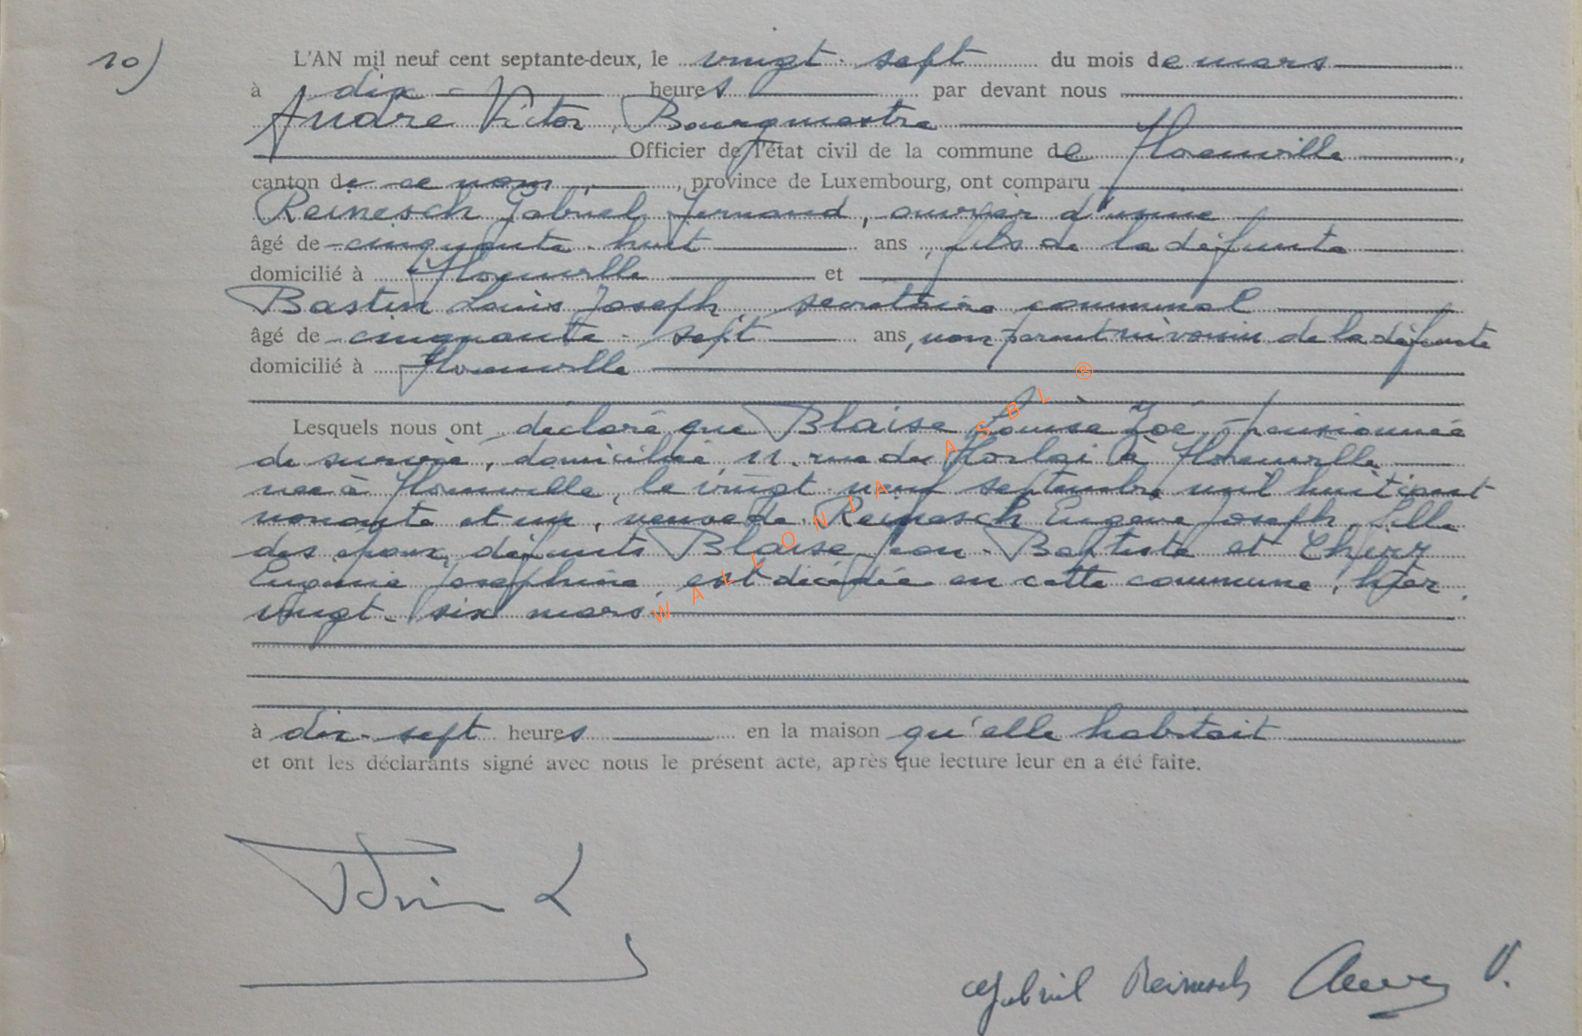 10)
L'AN mil neuf cent septante-deux, le vingt-sept du mois de mars
à dix heures par devant nous
André Victor, Bourgmestre
Officier de l'état civil de la commune de Florenville,
canton de ce nom, province de Luxembourg, ont comparu
Reinesch Gabriel Fernand, ouvrier d'usine
âgé de cinquante-huit ans, fils de la défunte
domicilié à Florenville et
Bastin Louis Joseph, secrétaire communal
âgé de cinquante-sept ans, non parent ni voisin de la défunte
domicilié à Florenville
Lesquels nous ont déclaré que Blaise Louise Zoé, pensionnée
de survie, domiciliée 11, rue du à Florenville
née à Florenville, le vingt neuf septembre mil huit cent
nonante et un, veuve de Reinesch Eugène Joseph, fille
des époux défunts Blaise Jean-Baptiste et Thiry
Eugénie Joséphine, est décédée en cette commune, hier
vingt-six mars.
à dix-sept heures en la maison qu'elle habitait
et ont les déclarants signé avec nous le présent acte, après que lecture leur en a été faite.
Gabriel Reinesch
WALLONIA ASBL ®